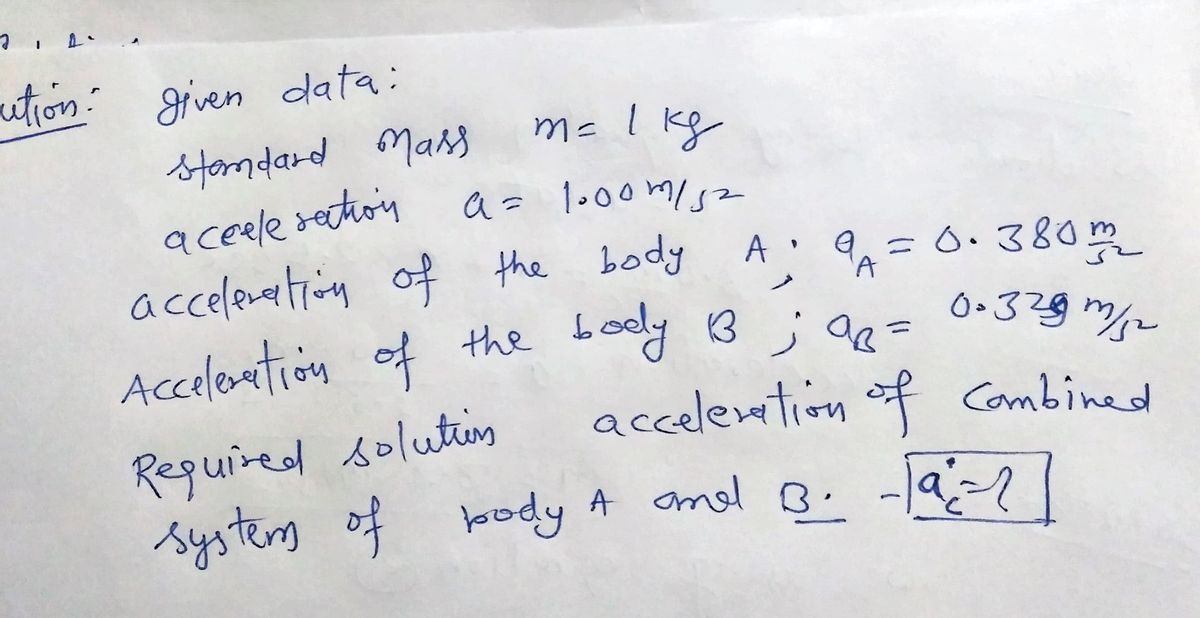 ution: given data:
standard mass m= 1 kg
aceeleration a= 1.00 m/s2
acceleration of the body A; aA = 0.380 m/s2
Acceleration of the body B ; aB = 0.329 m/s2
Required solution acceleration of combined
system of body A and B. - ac=?